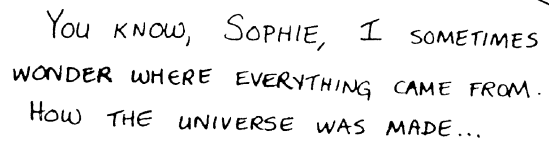 YOU KNOW, SOPHIE, I SOMETIMES
WONDER WHERE EVERYTHING CAME FROM.
HOW THE UNIVERSE WAS MADE...